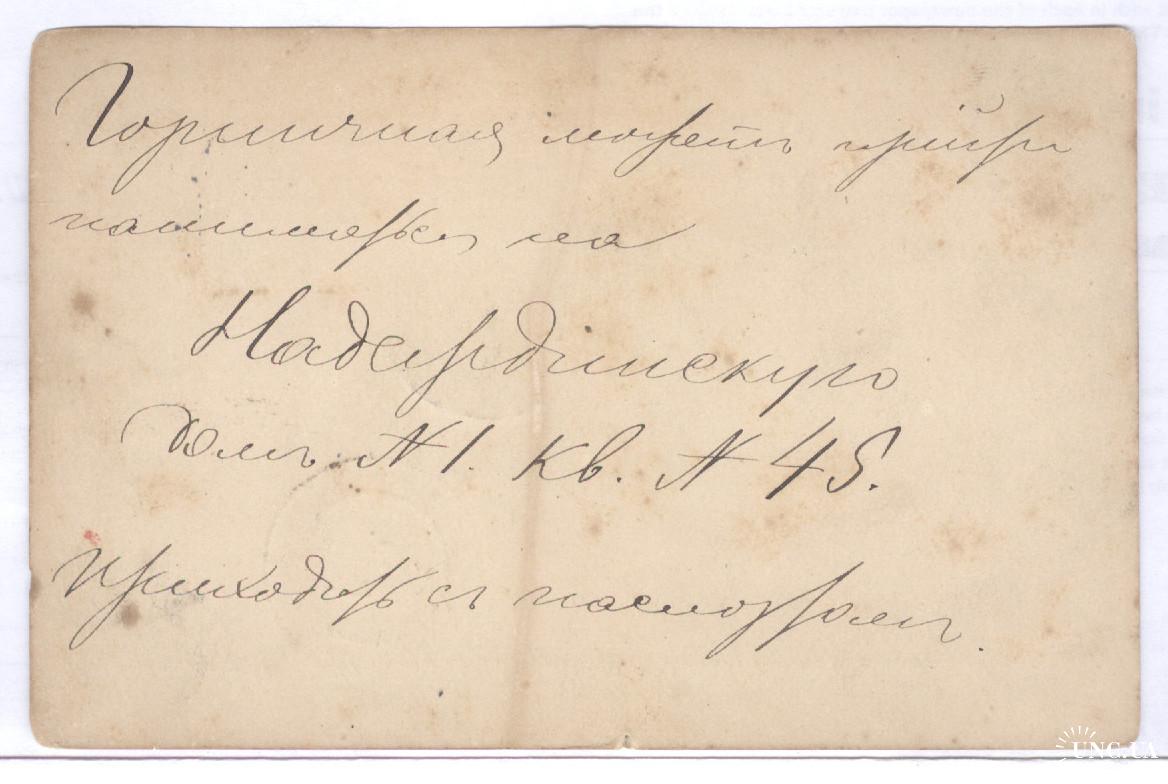 Горничная можетъ прійти
наниматься на
Надеждинскую
домъ № 1. кв. № 45.
приходить съ паспортомъ.
UNC.UA